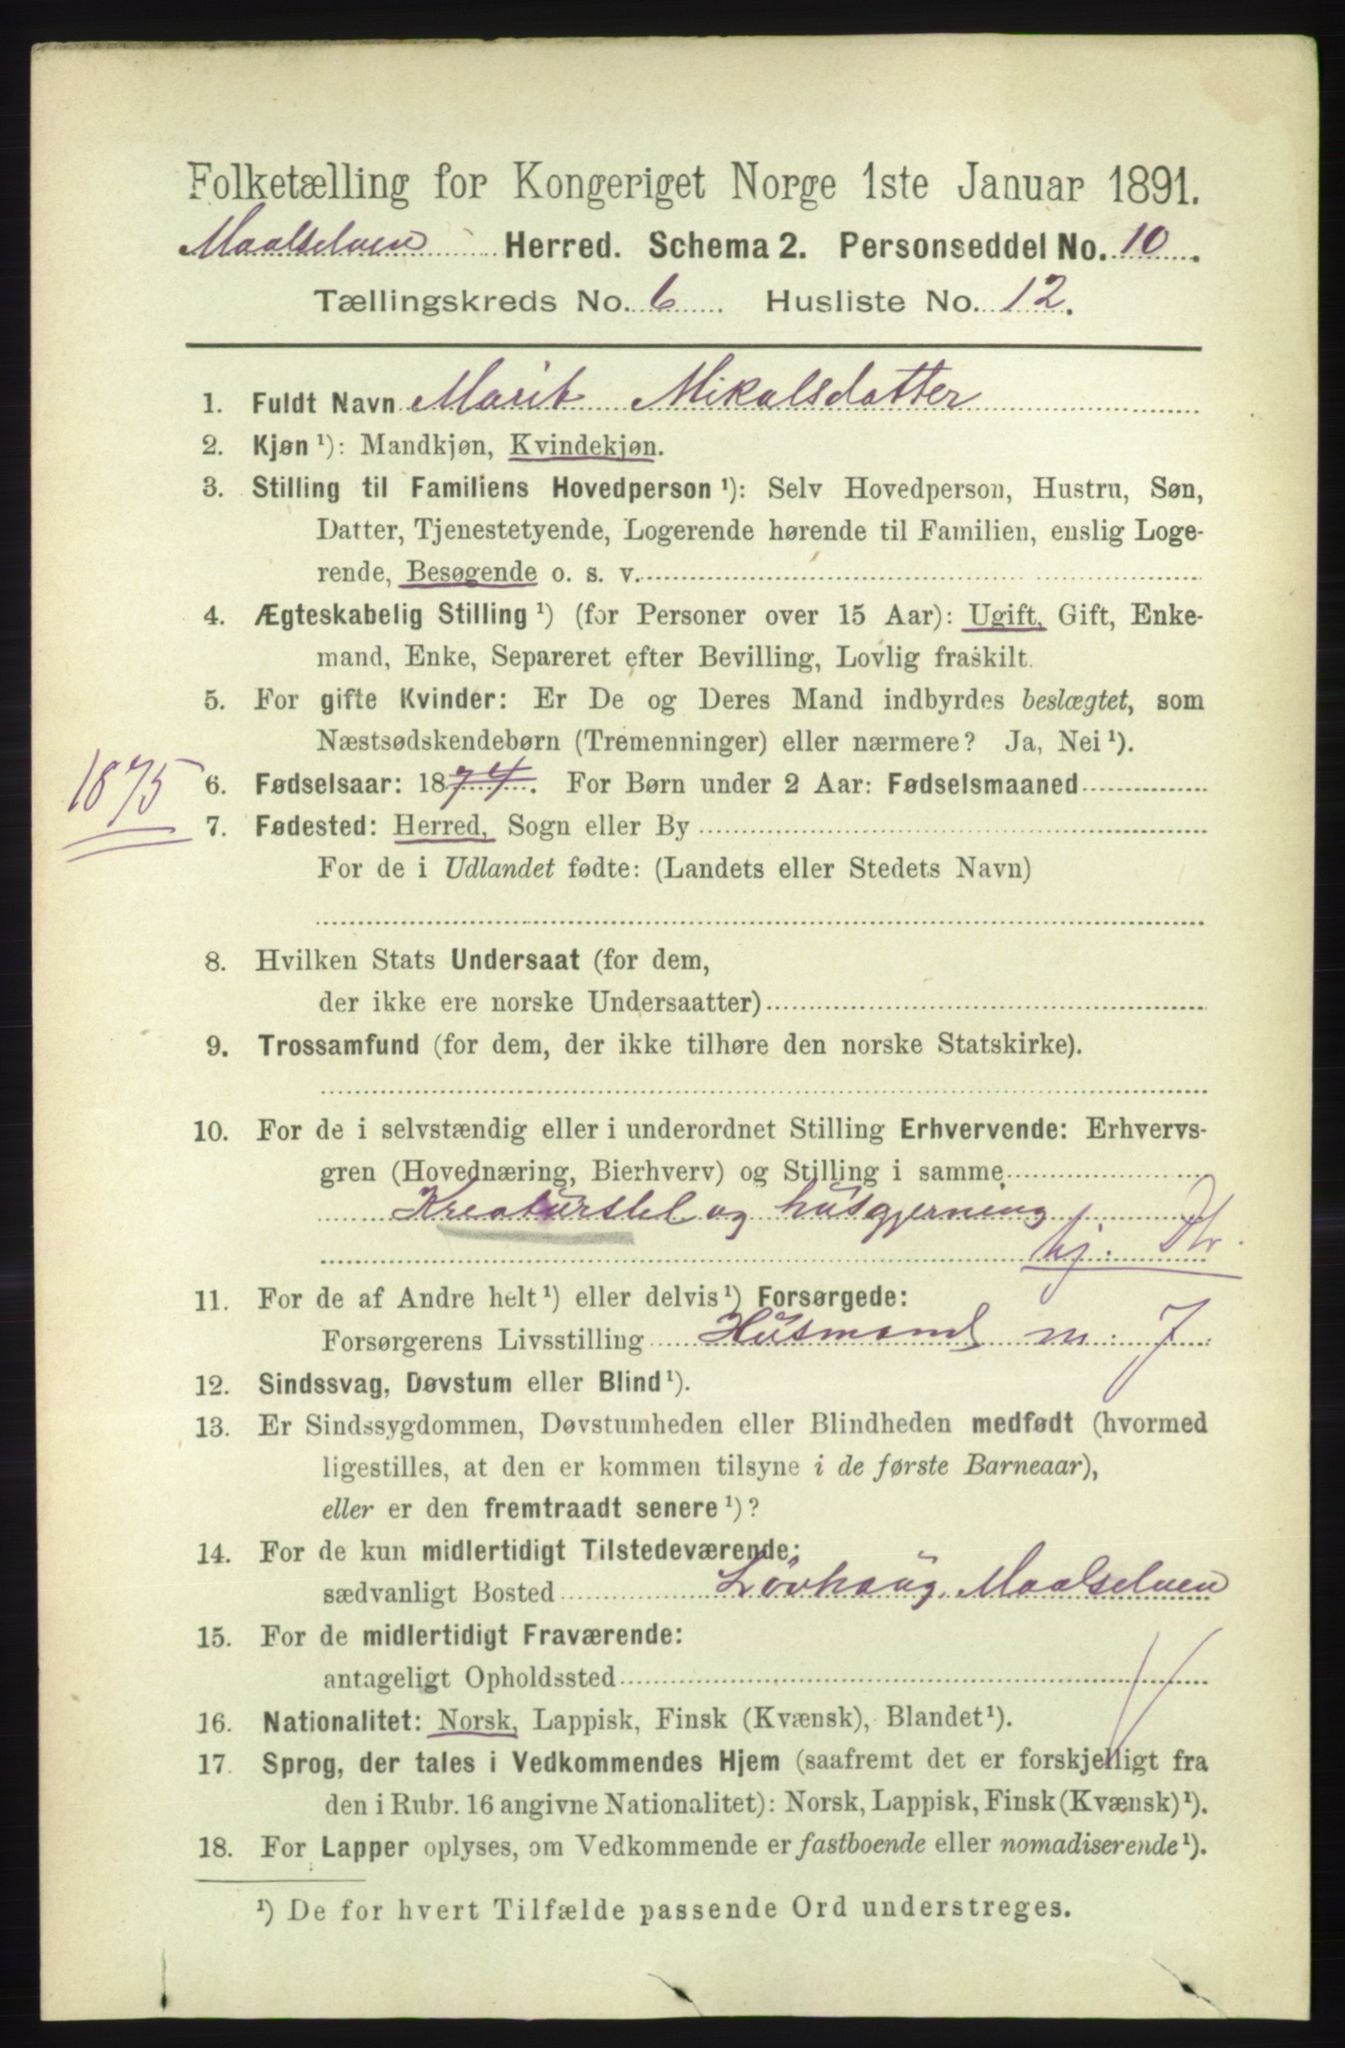 Folketælling for Kongeriget Norge 1ste Januar 1891.
Maalselven Herred. Schema 2. Personseddel No. 10.
Tællingskreds No. 6 Husliste No. 12.
1. Fuldt Navn Marit Mikalsdatter
2. Kjøn ¹): Mandkjøn, Kvindekjøn.
3. Stilling til Familiens Hovedperson ¹): Selv Hovedperson, Hustru, Søn,
Datter, Tjenestetyende, Logerende hørende til Familien, enslig Loge-
rende, Besøgende o. s. v.
4. Ægteskabelig Stilling ¹) (for Personer over 15 Aar): Ugift, Gift, Enke-
mand, Enke, Separeret efter Bevilling, Lovlig fraskilt.
5. For gifte Kvinder: Er De og Deres Mand indbyrdes beslægtet, som
Næstsødskendebørn (Tremenninger) eller nærmere? Ja, Nei ¹).
1875
6. Fødselsaar: 1874. For Børn under 2 Aar: Fødselsmaaned
7. Fødested: Herred, Sogn eller By
For de i Udlandet fødte: (Landets eller Stedets Navn)
8. Hvilken Stats Undersaat (for dem,
der ikke ere norske Undersaatter)
9. Trossamfund (for dem, der ikke tilhøre den norske Statskirke).
10. For de i selvstændig eller i underordnet Stilling Erhvervende: Erhvervs-
gren (Hovednæring, Bierhverv) og Stilling i samme
Kreaturstel og husgjerning
tj. Dtr.
11. For de af Andre helt ¹) eller delvis ¹) Forsørgede:
Forsørgerens Livsstilling Husmand m. J
12. Sindssvag, Døvstum eller Blind ¹).
13. Er Sindssygdommen, Døvstumheden eller Blindheden medfødt (hvormed
ligestilles, at den er kommen tilsyne i de første Barneaar),
eller er den fremtraadt senere ¹)?
14. For de kun midlertidigt Tilstedeværende:
sædvanligt Bosted Løvhaug, Maalselven
15. For de midlertidigt Fraværende:
antageligt Opholdssted
16. Nationalitet: Norsk, Lappisk, Finsk (Kvænsk), Blandet ¹).
17. Sprog, der tales i Vedkommendes Hjem (saafremt det er forskjelligt fra
den i Rubr. 16 angivne Nationalitet): Norsk, Lappisk, Finsk (Kvænsk) ¹).
18. For Lapper oplyses, om Vedkommende er fastboende eller nomadiserende ¹).
¹) De for hvert Tilfælde passende Ord understreges.